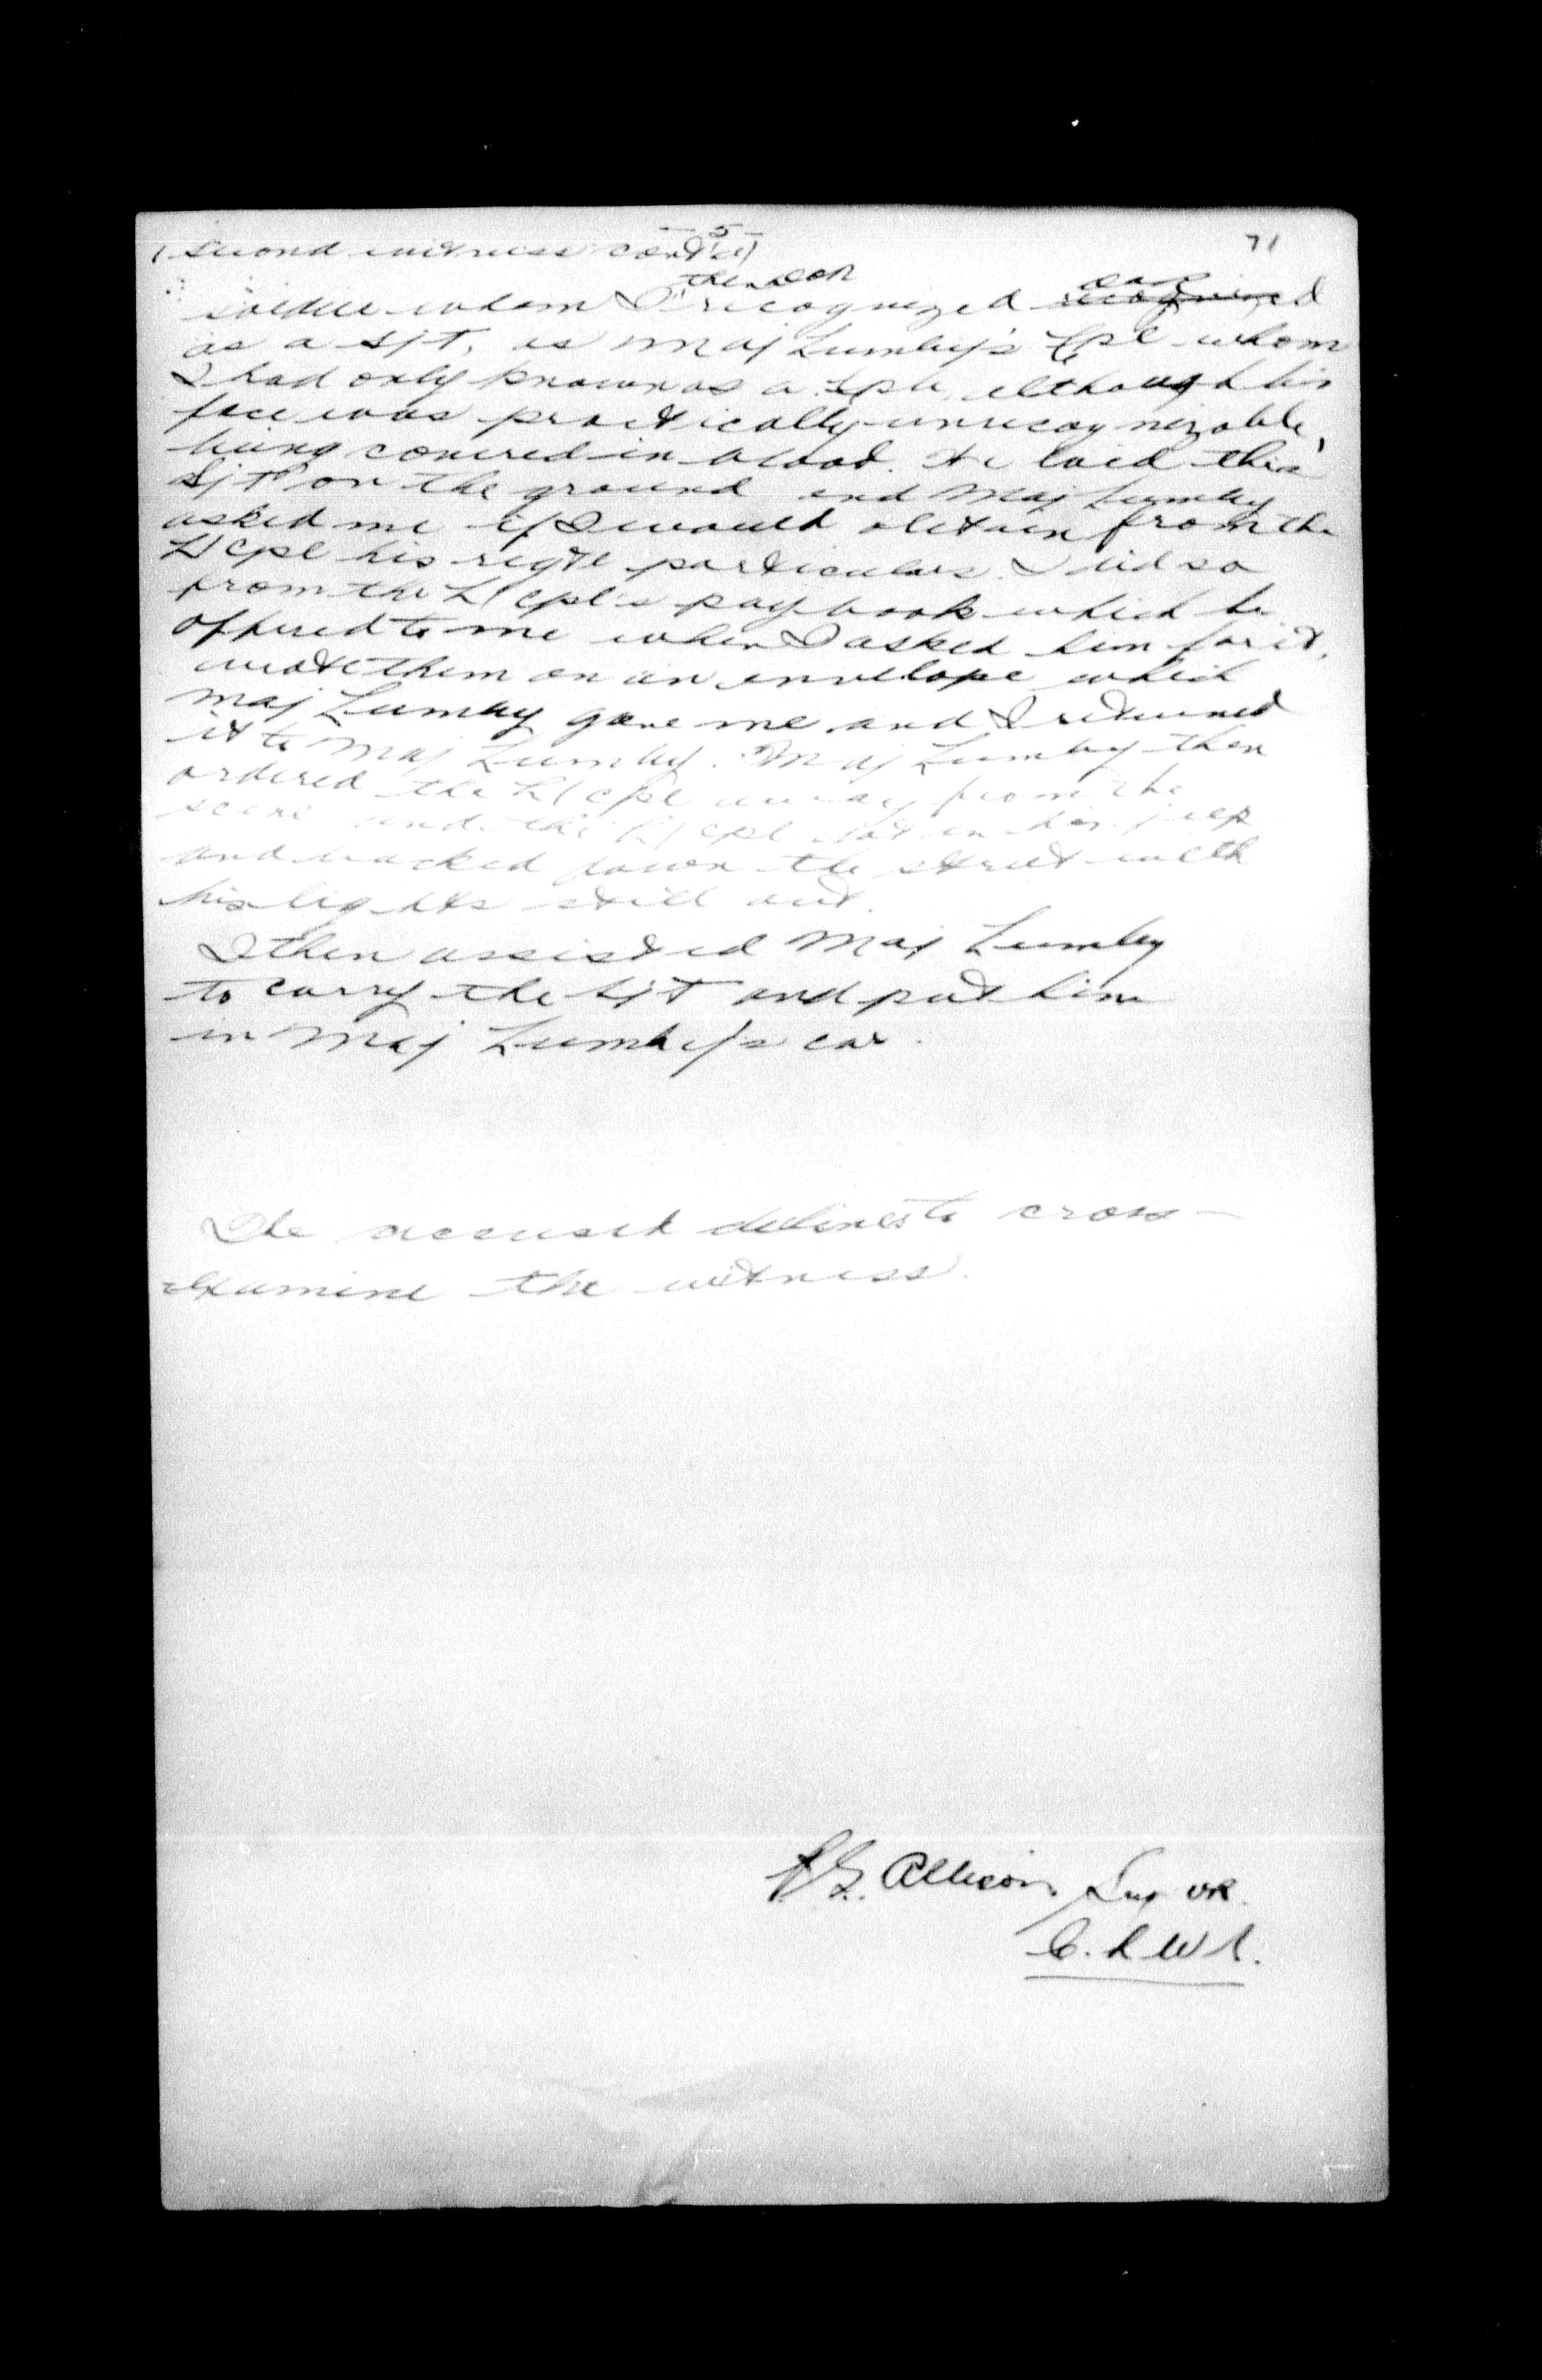 - 5 -
71
(second witness cont'd)
then
soldier whom I recognized recognized
as a Sjt, as Maj Lumley's Cpl whom
I had only known as a Cpl, although his
face was practically unrecognizable,
being covered in blood. He laid this
Sjt on the ground and Maj Lumley
asked me if I would obtain from the
L/Cpl his regtl particulars. I did so
from the L/Cpl's pay book which he
offered to me when I asked him for it,
wrote them on an envelope which
Maj Lumley gave me and I returned
it to Maj Lumley. Maj Lumley then
ordered the L/Cpl away from the
scene and the L/Cpl sat in his jeep
and backed down the street with
his lights still out.
I then assisted Maj Lumley
to carry the Sjt and put him
in Maj Lumley's car.
The accused declines to cross-
examine the witness.
Allison